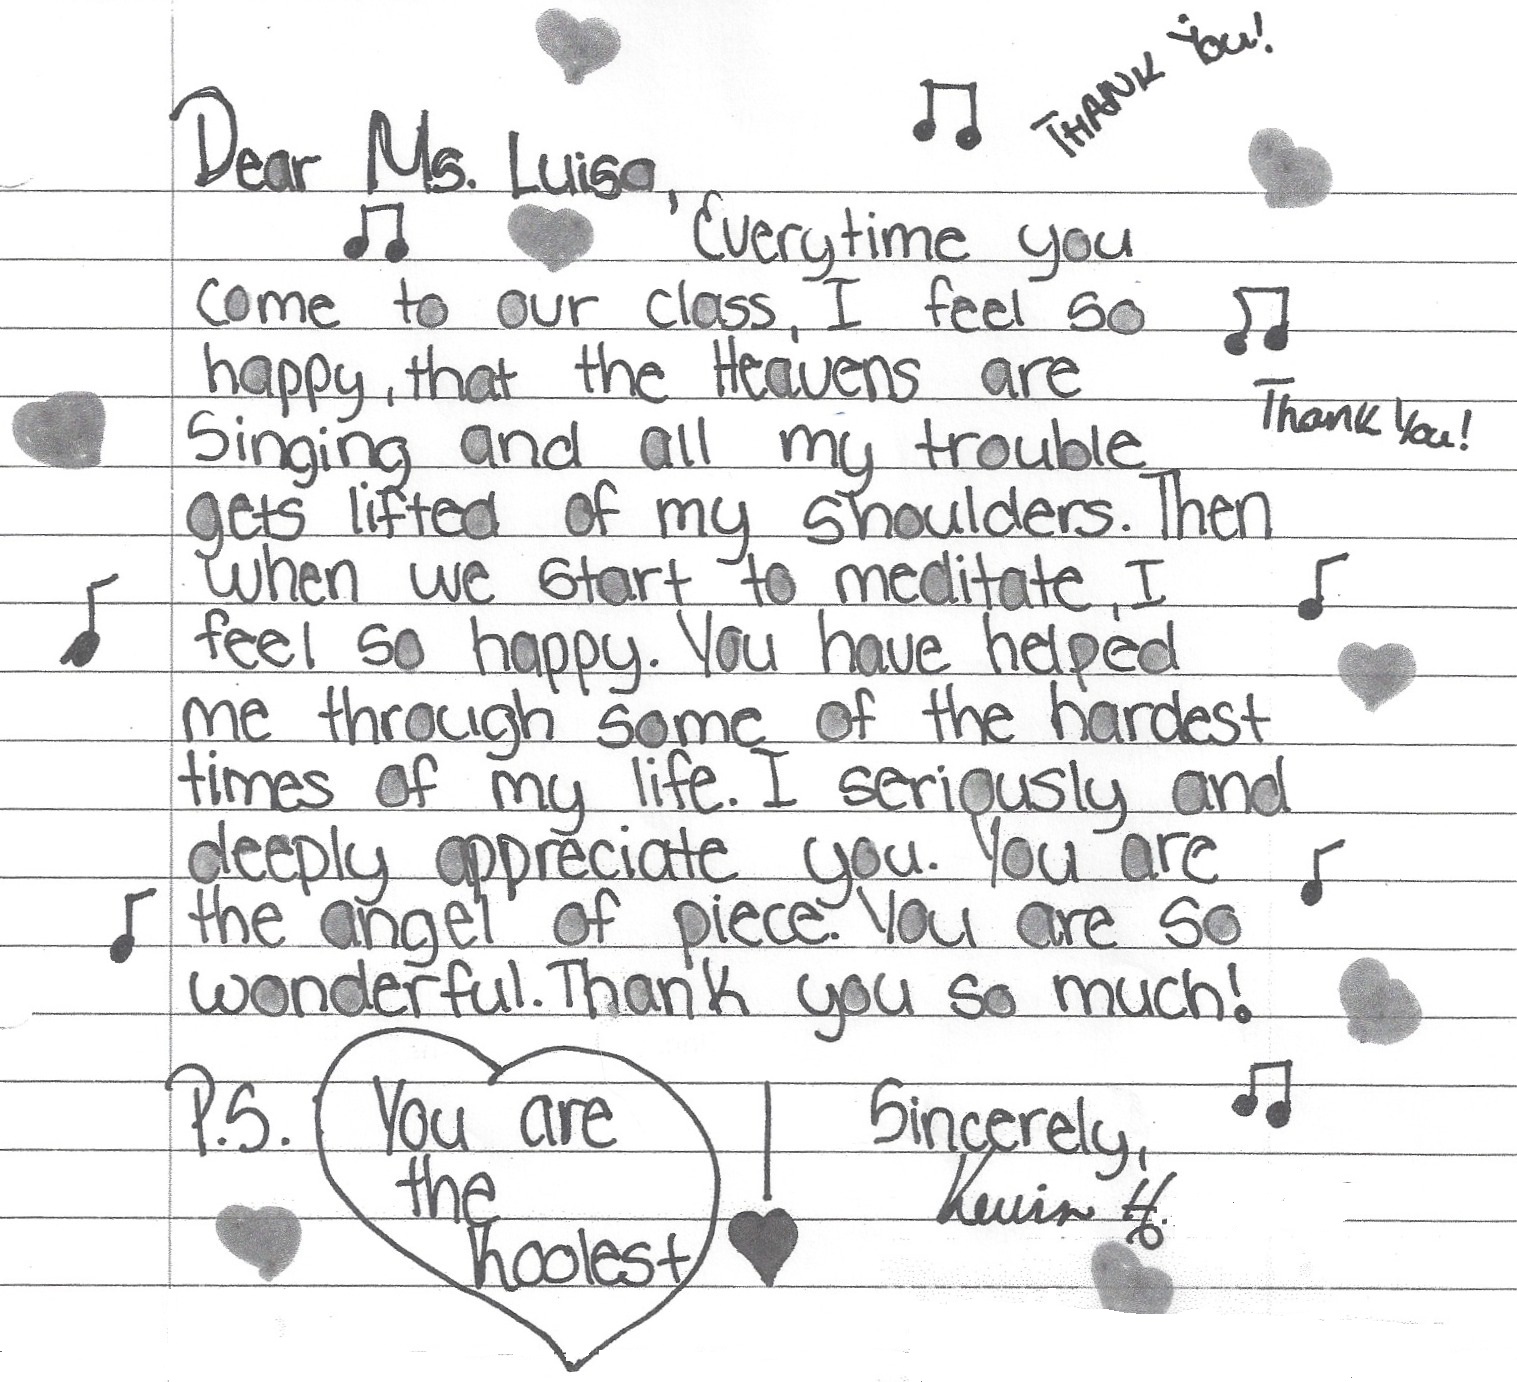 THANK You!
Dear Ms. Luisa,
Everytime you
come to our class, I feel so
happy, that the Heavens are
Thank You!
Singing and all my trouble
gets lifted of my shoulders. Then
when we start to meditate, I
feel so happy. You have helped
me through some of the hardest
times of my life. I seriously and
deeply appreciate you. You are
the angel of piece. You are so
wonderful. Thank you so much!
P.S. You are
the
koolest
Sincerely,
Kevin H.